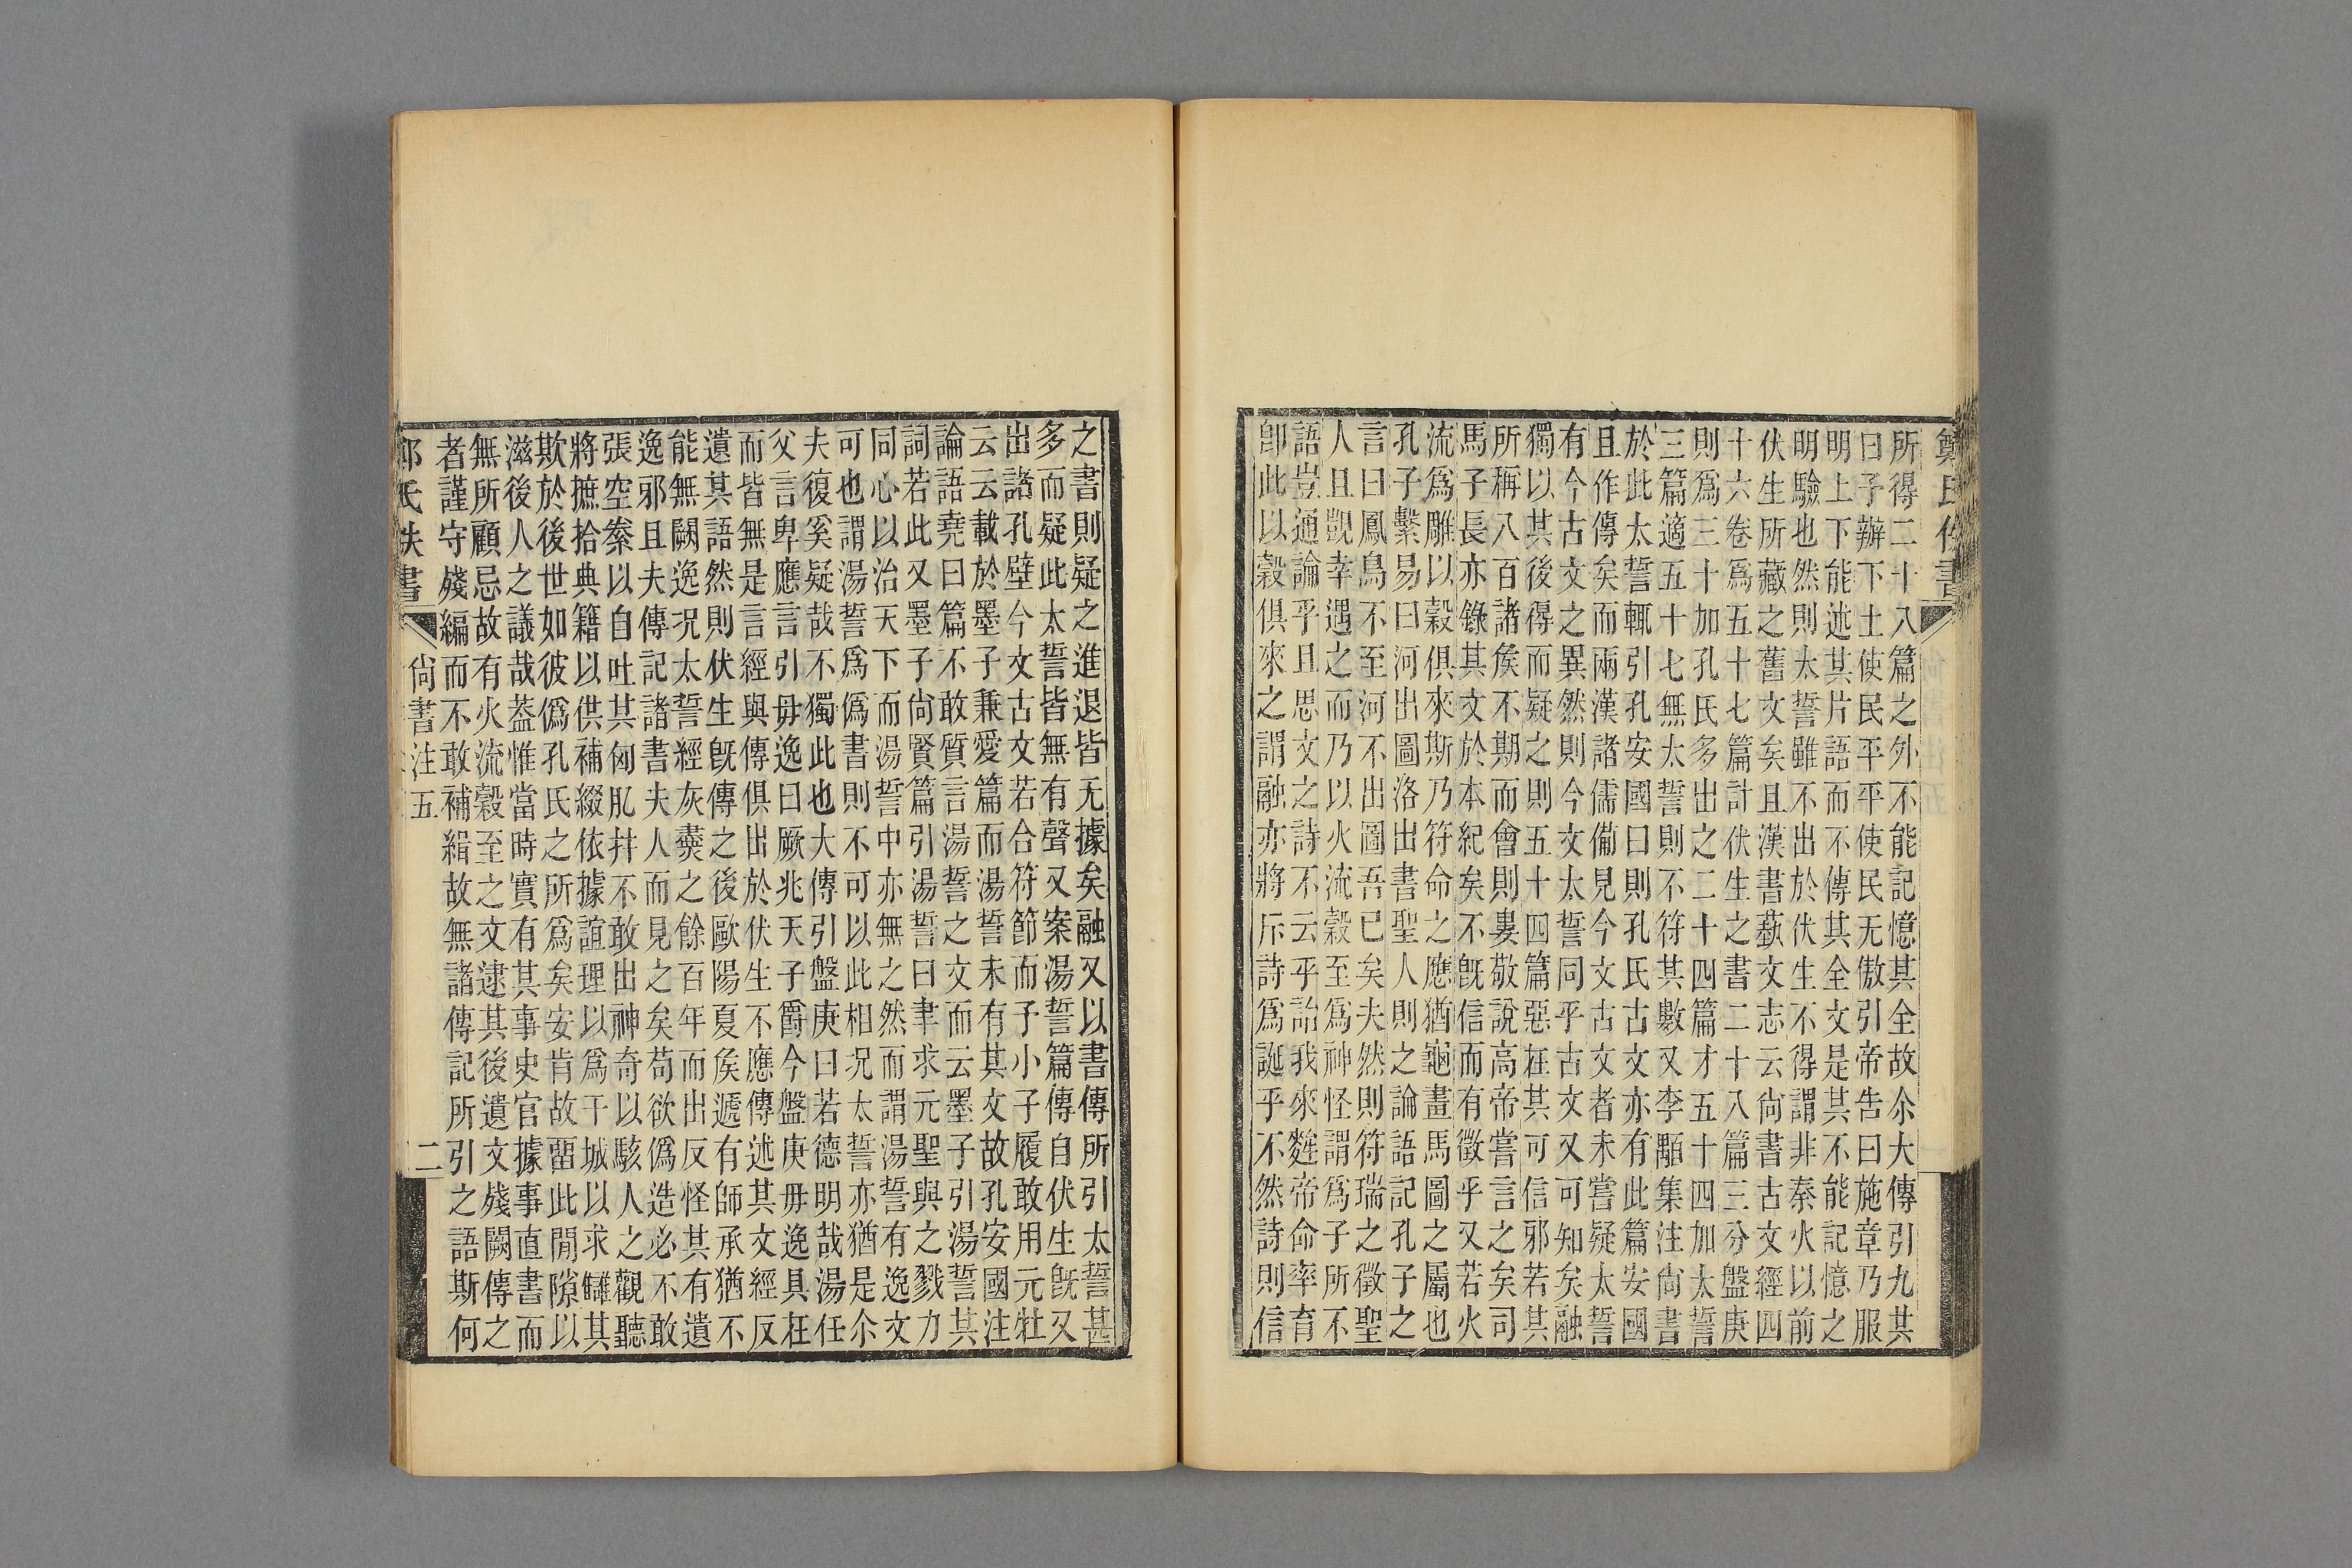 鄭氏佚書
所得二十八篇之外不能記憶其全故尒大傳引九共
曰予辯下土使民平平使民无傲引帝告曰施章乃服
明上下能述其片語而不傳其全文是其不能記憶之
明驗也然則太誓雖不出於伏生不得謂非秦火以前
伏生所藏之舊文矣且漢書蓺文志云尙書古文經四
十六卷爲五十七篇計伏生之書二十八篇三分盤庚
則爲三十加孔氏多出之二十四篇才五十四加太誓
三篇適五十七無太誓則不符其數又李顒集注尙書
於此太誓輒引孔安國曰則孔氏古文亦有此篇安國
且作傳矣而兩漢諸儒備見今文古文者未嘗疑太誓
有今古文之異然則今文太誓同乎古文又可知矣融
獨以其後得而疑之則五十四篇惡在其可信邪若其
所稱八百諸矦不期而會則婁敬說高帝嘗言之矣司
馬子長亦錄其文於本紀矣不旣信而有徵乎又若火
流爲雕以榖俱來斯乃符命之應猶龜畫馬圖之屬也
孔子繫易曰河出圖洛出書聖人則之論語記孔子之
言曰鳳鳥不至河不出圖吾已矣夫然則符瑞之徵聖
人且覬幸遇之而乃以火流榖至爲神怪謂爲子所不
語豈通論乎且思文之詩不云乎詒我來麰帝命率育
卽此以榖俱來之謂融亦將斥詩爲誕乎不然詩則信
之書則疑之進退皆无據矣融又以書傳所引太誓甚
多而疑此太誓皆無有聲又案湯誓篇傳自伏生旣又
出諸孔壁今文古文若合符節而予小子履敢用元牡
云云載於墨子兼愛篇而湯誓未有其文故孔安國注
論語堯曰篇不敢質言湯誓之文而云墨子引湯誓其
詞若此又墨子尙賢篇引湯誓曰聿求元聖與之戮力
同心以治天下而湯誓中亦無之然而謂湯誓有逸文
可也謂湯誓爲僞書則不可以此相況太誓亦猶是尒
夫復奚疑哉不獨此也大傳引盤庚曰若德明哉湯任
父言卑應言引毋逸曰厥兆天子爵今盤庚毋逸具在
而皆無是言經與傳俱出於伏生不應傳述其文經反
遺其語然則伏生旣傳之後歐陽夏矦遞有師承猶不
能無闕逸況太誓經灰㷼之餘百年而出反怪其有遺
逸邪且夫傳記諸書夫人而見之矣苟欲僞造必不敢
張空桊以自吐其匈肊幷不敢出神奇以駭人之觀聽
將摭拾典籍以供補綴依據誼理以爲干城以求讎其
欺於後世如彼僞孔氏之所爲矣安肯故畱此閒隙以
滋後人之議哉葢惟當時實有其事史官據事直書而
無所顧忌故有火流榖至之文逮其後遺文殘闕傳之
者謹守殘編而不敢補緝故無諸傳記所引之語斯何
氏佚書 尙書注五 二